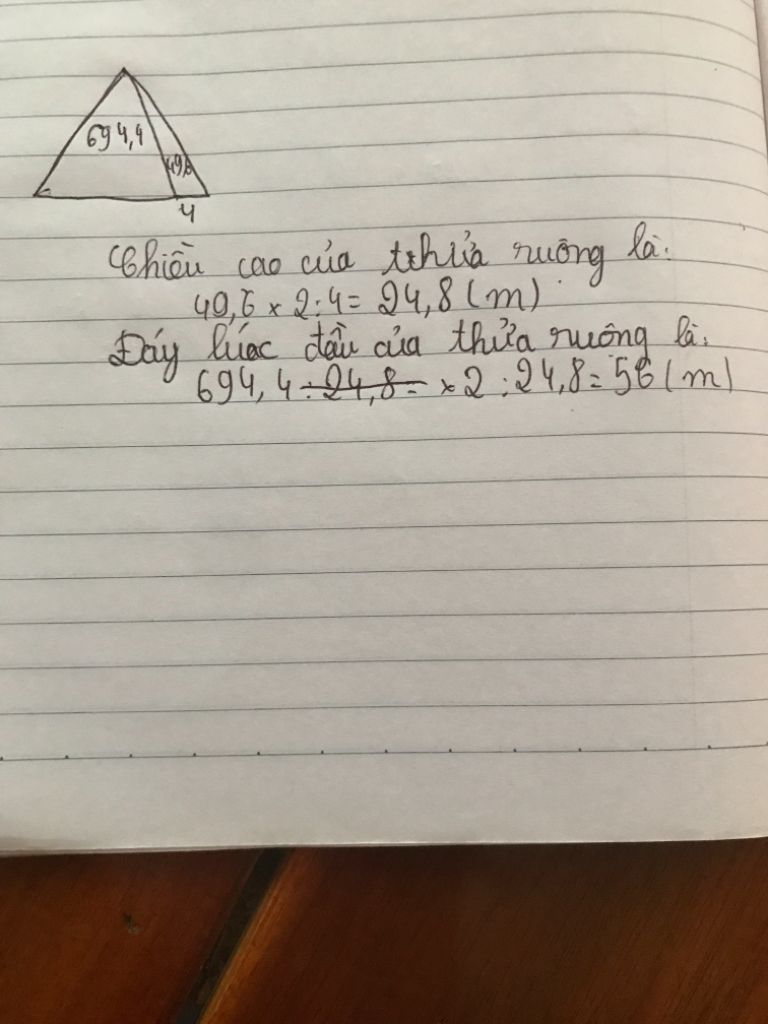 694,4
49,6
4
Chiều cao của thửa ruộng là:
49,6 × 2 : 4 = 24,8 (m)
Đáy lúac đầu của thửa ruộng là:
694,4 : 24,8 = × 2 : 24,8 = 56 (m)